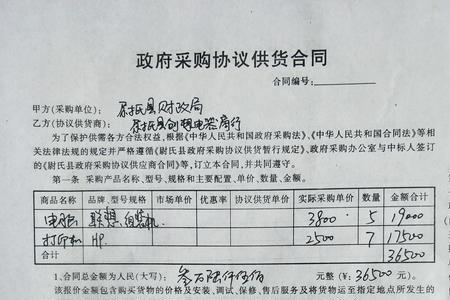 政府采购协议供货合同
合同编号:
甲方(采购单位): 尉氏县财政局
乙方(协议供货商): 尉氏县创想电器商行
为了保护供需各方合法权益,根据《中华人民共和国政府采购法》、《中华人民共和国合同法》等相
关法律法规的规定并严格遵循《尉氏县政府采购协议供货暂行规定》、政府采购办公室与中标人签订
的《尉氏县政府采购协议供应商合同》等,订立本合同,并共同遵守。
第一条 采购产品名称、型号、规格和主要配置、单价、数量、金额。
商品名称 品牌、型号规格 市场单价 优惠率 协议供货单价 实际采购单价 数量 金额合计
电脑 联想 组装机 3800 5 19000
打印机 HP 2500 7 17500
合计 36500
1、合同总金额为人民(大写): 叁万陆仟伍佰 元整(¥: 36500 元)。
该报价金额包含购买货物的价格及安装、调试、保修、售后服务及将货物运至指定地点所发生的